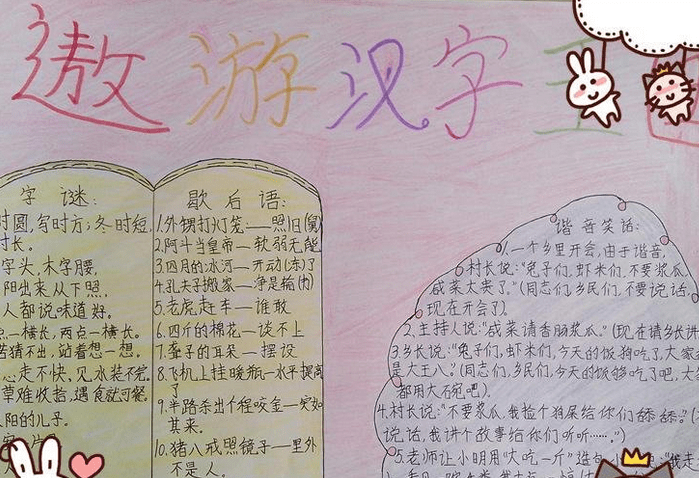 遨游汉字王
字谜:
时圆,写时方;冬时短,
时长。
字头,木字腰,
阳出来从下照,
人都说味道好。
点一横长,两点一横长。
若猜不出,站着想一想。
心走不快,见水装不完。
草难收拾,遇食就可餐。
阳的儿子。
歇后语:
1.外甥打灯笼——照旧(舅)
2.阿斗当皇帝——软弱无能
3.四月的冰河——开动(冻)了
4.孔夫子搬家——净是输(书)
5.老虎赶车——谁敢
6.四斤的棉花——谈不上
7.聋子的耳朵——摆设
8.飞机上挂暖瓶—水平提高
了
9.半路杀出个程咬金—突如
其来。
10.猪八戒照镜子——里外
不是人。
谐音笑话:
1.一个乡里开会,由于谐音,
村长说:“兔子们,虾米们,不要浆瓜,
咸菜太贵了。”(同志们,乡民们,不要说话,
现在开会了)
2.主持人说:“咸菜请香肠浆瓜。”(现在请乡长讲
3.乡长说:“兔子们,虾米们,今天的饭狗吃了,大家
是大王八。”(同志们,乡民们,今天的饭够吃了吧,大
都用大碗吧)
4.村长说:“不要浆瓜,我捡个狗屎给你们舔舔。”(
说话,我讲个故事给你们听听……。”)
5.老师让小明用“大吃一斤”造句,小